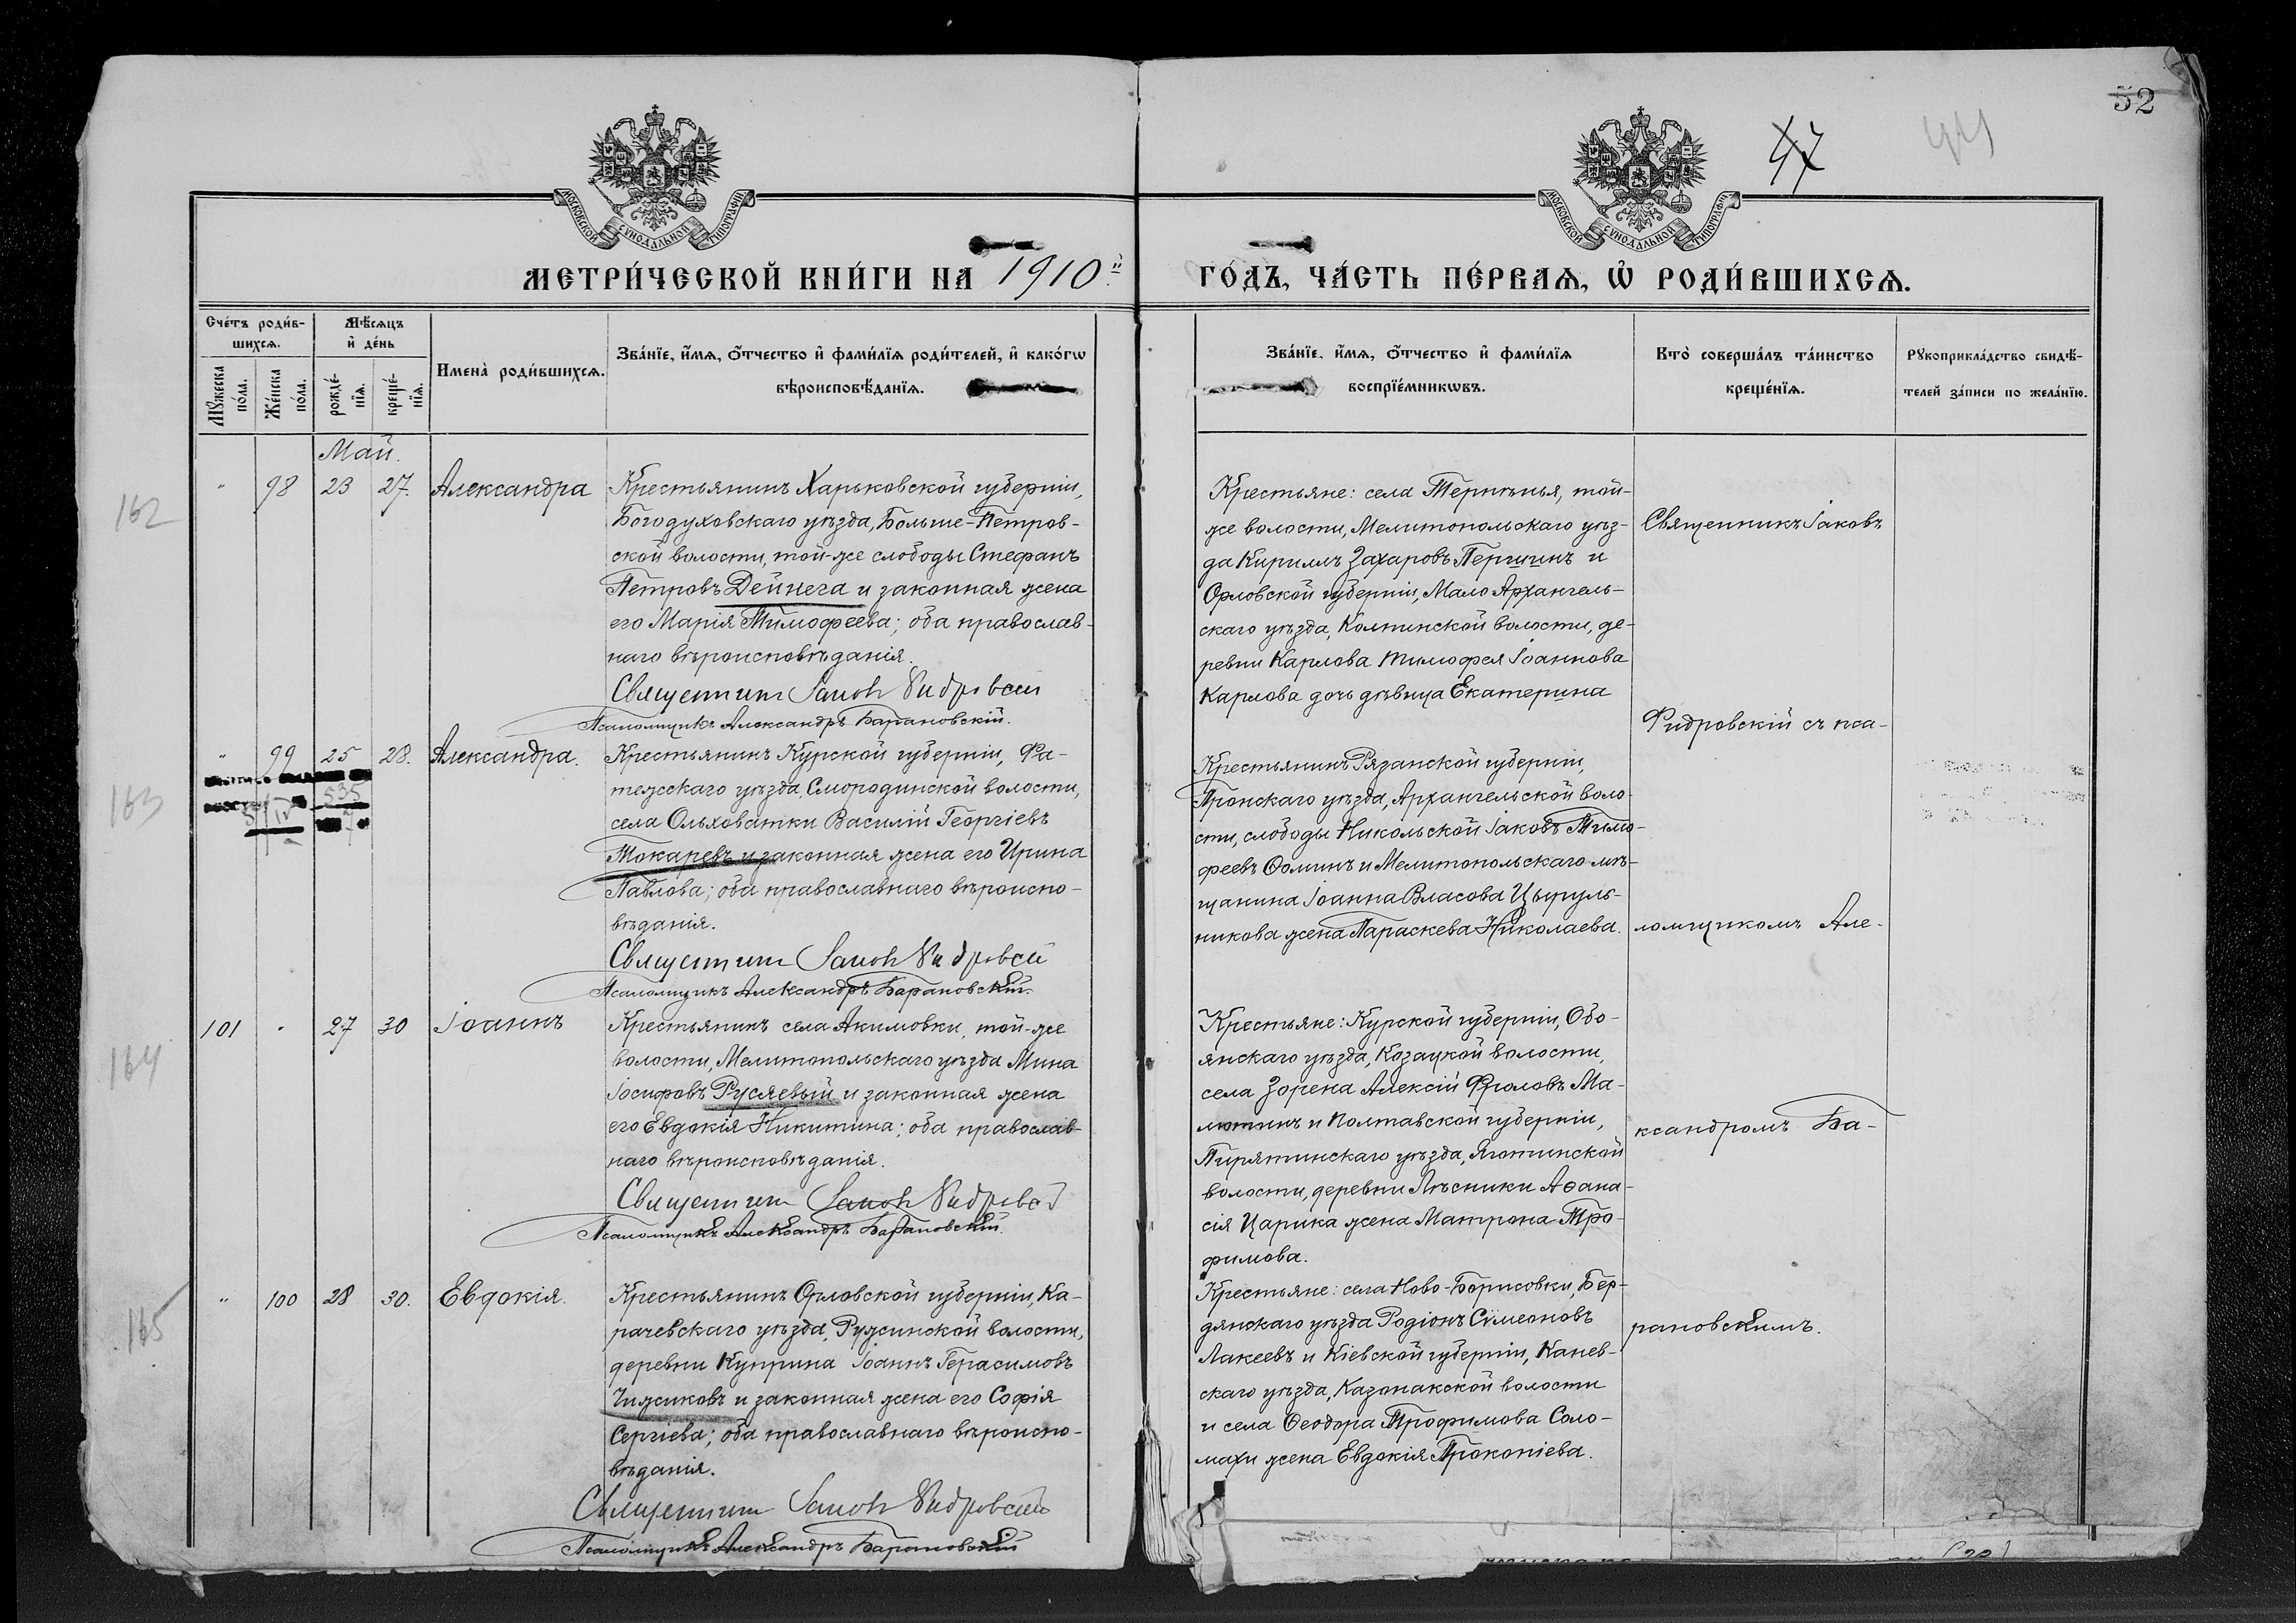 52
47
МОСКОВСКОЙ СѴНОДАЛЬНОЙ ТИПОГРАФІИ
МОСКОВСКОЙ СѴНОДАЛЬНОЙ ТИПОГРАФІИ
МЕТРИ́ЧЕСКОЙ КНИ́ГИ НА 1910й
ГО́ДЪ, ЧА́СТЬ ПЕ́РВАѦ, Ѡ҆ РОДИ́ВШИХСѦ.
Сче́тъ роди́в-
шихсѧ.
Мꙋ́жеска по́ла.
Же́нска по́ла.
Мѣ́сѧцъ
и҆ де́нь
рожде́-
нїѧ.
креще́-
нїѧ.
Имена̀ роди́вшихсѧ.
Зва́нїе, и҆́мѧ, о҆́тчество и҆ фами́лїѧ роди́телей, и҆ како́гѡ
вѣроисповѣ́данїѧ.
Зва́нїе, и҆́мѧ, о҆́тчество и҆ фами́лїѧ
воспрїе́мникѡвъ.
Кто̀ соверша́лъ та́инство
креще́нїѧ.
Рꙋкоприкла́дство свидѣ́-
телей за́писи по жела́нїю.
Май.
162
" 98 23 27. Александра
Крестьянинъ Харьковской губерніи,
Богодуховскаго уѣзда, Больше-Петров-
ской волости, той-же слободы Стефанъ
Петровъ Дейнега и законная жена
его Марія Тимофеева; оба православ-
наго вѣроисповѣданія.
Священникъ Іаковъ Фидровскій
Псаломщикъ Александръ Барановскій.
Крестьяне: села Терпѣнья, той-
же волости, Мелитопольскаго уѣз-
да Кириллъ Захаровъ Першинъ и
Орловской губерніи, Мало Архангель-
скаго уѣзда, Колпинской волости, де-
ревни Карлова Тимофея Іоаннова
Карлова дочь дѣвица Екатерина
Священникъ Іаковъ
Фидровскій съ пса-
163
" 99 25 28. Александра.
535
Крестьянинъ Курской губерніи, Фа-
тежскаго уѣзда, Смородинской волости,
села Ольховатки Василій Георгіевъ
Токаревъ и законная жена его Ирина
Павлова; оба православнаго вѣроиспо-
вѣданія.
Священникъ Іаковъ Фидровскій
Псаломщикъ Александръ Барановскій.
Крестьянинъ Рязанской губерніи,
Пронскаго уѣзда, Архангельской воло-
сти, слободы Никольской Іаковъ Тимо-
феевъ Ѳоминъ и Мелитопольскаго мѣ-
щанина Іоанна Власова Цыруль-
никова жена Параскева Николаева.
ломщикомъ Але-
164
101 " 27 30 Іоаннъ
Крестьянинъ села Акимовки, той-же
волости, Мелитопольскаго уѣзда Мина
Іосифовъ Русяевый и законная жена
его Евдокія Никитина; оба православ-
наго вѣроисповѣданія.
Священникъ Іаковъ Фидровскій
Псаломщикъ Александръ Барановскій.
Крестьяне: Курской губерніи, Обо-
янскаго уѣзда, Козацкой волости,
села Зорена Алексій Фроловъ Ма-
лютинъ и Полтавской губерніи,
Пирятинскаго уѣзда, Яготинской
волости, деревни Лѣсники Аѳана-
сія Царика жена Матрона Тро-
фимова.
ксандромъ Ба-
165
" 100 28 30. Евдокія.
Крестьянинъ Орловской губерніи, Ка-
рачевскаго уѣзда, Ружинской волости,
деревни Куприна Іоаннъ Герасимовъ
Чижиковъ и законная жена его Софія
Сергіева; оба православнаго вѣроиспо-
вѣданія.
Священникъ Іаковъ Фидровскій
Псаломщикъ Александръ Барановскій
Крестьяне: села Ново-Борисовки, Бер-
дянскаго уѣзда Родіонъ Сѵмеоновъ
Лакеевъ и Кіевской губерніи, Канев-
скаго уѣзда, Казонакской волости
и села Ѳеодора Трофимова Соло-
махи жена Евдокія Прокопіева.
рановскимъ.